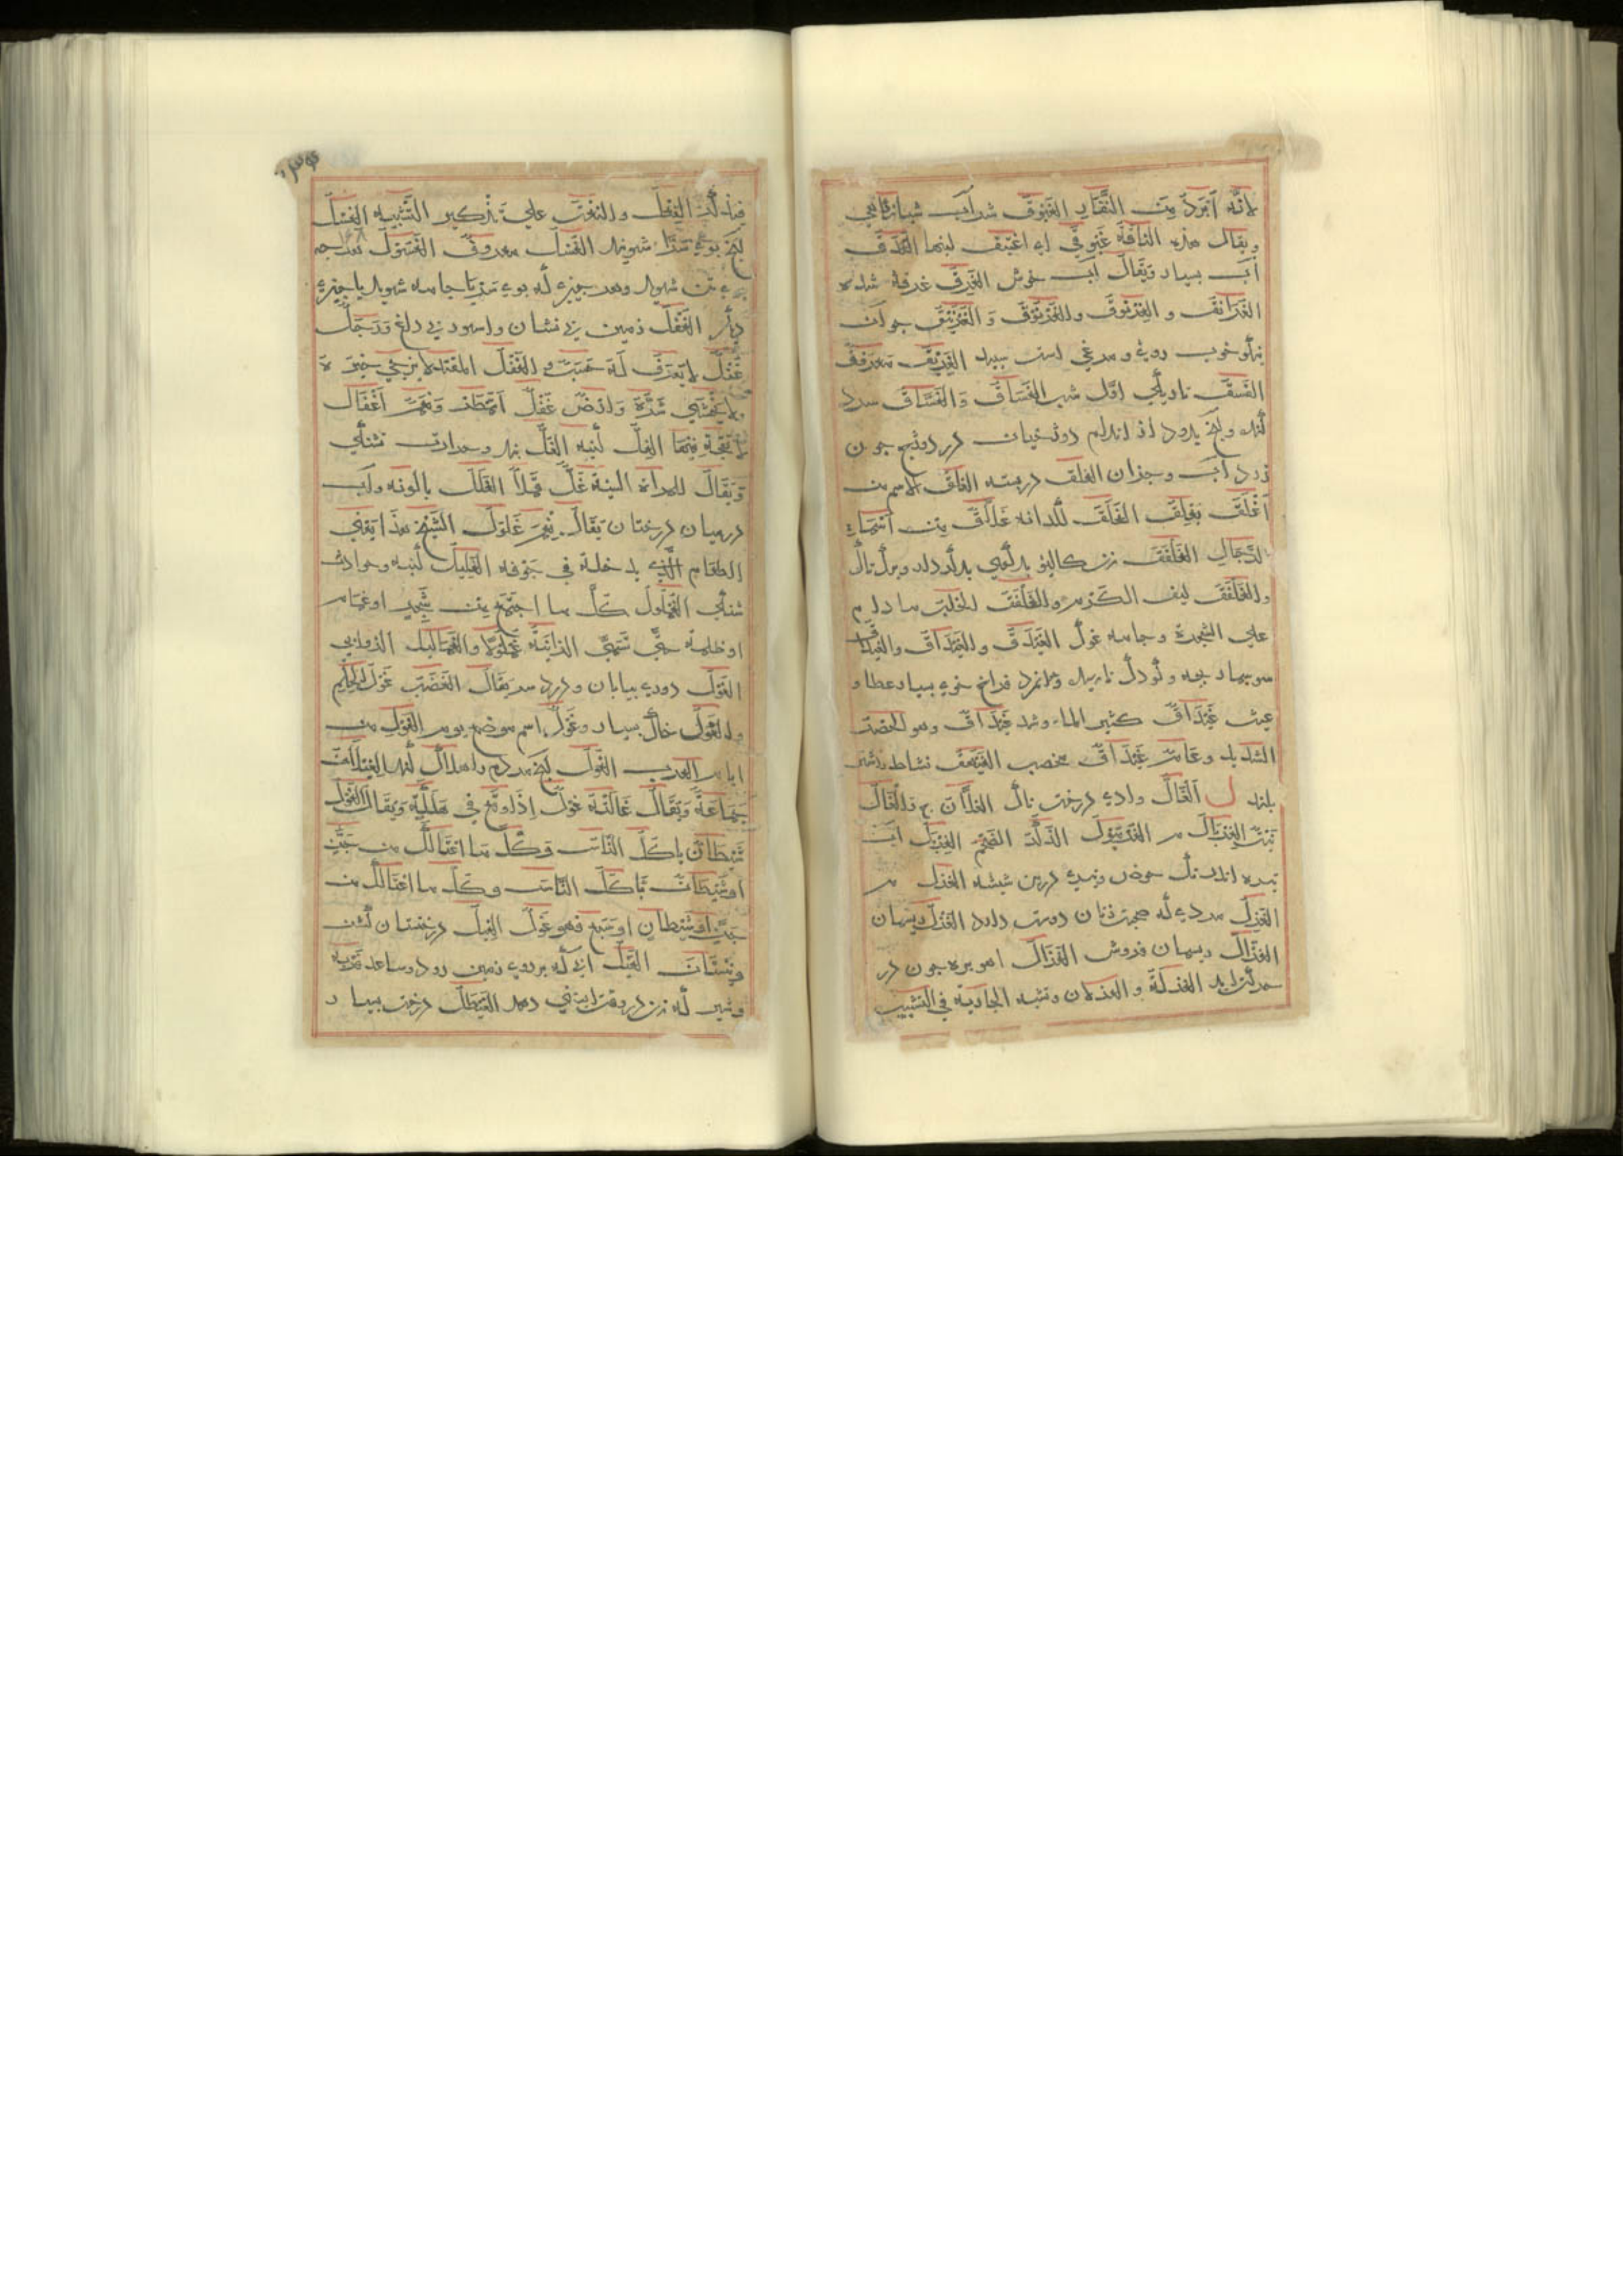 لانّه ابرد من النّهار الغبوق شراب شبانگاهی
ويقال هذه الناقة غبوقي اي اغتبق لبنها الغدق
آب بسيار ويقال آب خوش الغرق غرقه شدن
الغرانق و الغرنوق والغرنوق و الغرنيق جوان
نيكو خوب روي و مرغي است سپيد الغريق معروف
الغسق تاريكي اوّل شب الغساق والغسّاق سرد
گنده و آنچ برود از اندام دوزخيان در دوزخ چون
زرد آب وجزان الغلق در بسته الغلق الاسم من
اغلق يغلق الغلق كلدانه غلاق من اسماء
الرّجال الغلفق
والغلفق ليف الكرم والغلفق الخلب ما دام
علي الشجرة وجامه غوك الغيدق والغيداق والغيداق
سوسمار بچه وكودك نارسيده ومرد فراخ خوي بسيار عطا و
عيش غيداق كثير الماء وشد غيداق وهو الحضر
الشديد وعام غيداق مخصب الغيهق نشاط
بلند ل الغالّ وادي درخت ناك الغلّان ج
نبت الغربال م الغرمول الذّكر الضّخم الغريل آب
تيره اندك حوض و تيره در بن شيشه الغزل م
الغزل مردي كه صحبت زنان دوست دارد الغزل ريسمان
الغزّال ريسمان فروش الغزال اهو بره چون در
حركت آيد الغزلة و الغزلان وتشبه الجارية في التشبيب
فيذكّر الفعل والنعت علي تذكير التّشبيه الغسل
آنچ بوي سر شويند الغسل معروف الغسول
بوي تن شويند وهر چيزي كه بوي سر يا جامه شويند يا چيزي
ديگر الغفل زمين بي نشان واستور بي داغ ورجل
غفل لا يعرف له حسب و الغفل المقيّد لا يرجي خيره
ولا يخشي شرّه وارض غفل لم تمطر ونعم اغفال
لا لقحة فيها الغلّ كينه الغلّ بند وحرارت تشنگي
ويقال للمرأة السّيّئة غلّ قملٌ الغلل پالونه وآب
در ميان درختان يقال نعم غلول الشيخ هذا يعني
الطعام الّذي يدخله في جوفه الغليل كينه وحرارت
تشنگي الغملول كلّ ما اجتمع من شجر او غمام
او ظلمة حتّي تسمّي الزاوية غملولا والغماليل الرّوابي
الغول دوري بيابان و درد سر يقال الغضب غول الحلم
والغول خاك بسيار وغول اسم موضع يوم الغول من
ايام العرب الغول آنچ مردم را هلاك كند الغيلان
جماعة ويقال غالته غول اذا وقع في مهلكة ويقال الغول
شيطان ياكل النّاس وكلّ ما اغتالك من جنّ
او شيطان يأكل النّاس وكلّ ما اغتالك من
جنّ او شيطان او سبع فهو غول الغيل درختستان كشن
ونيستان الغيل آبي كه بر روي زمين رود وساعد فربه
وشير كه زن در وقت آبستني دهد الغيطل درخت بسيار